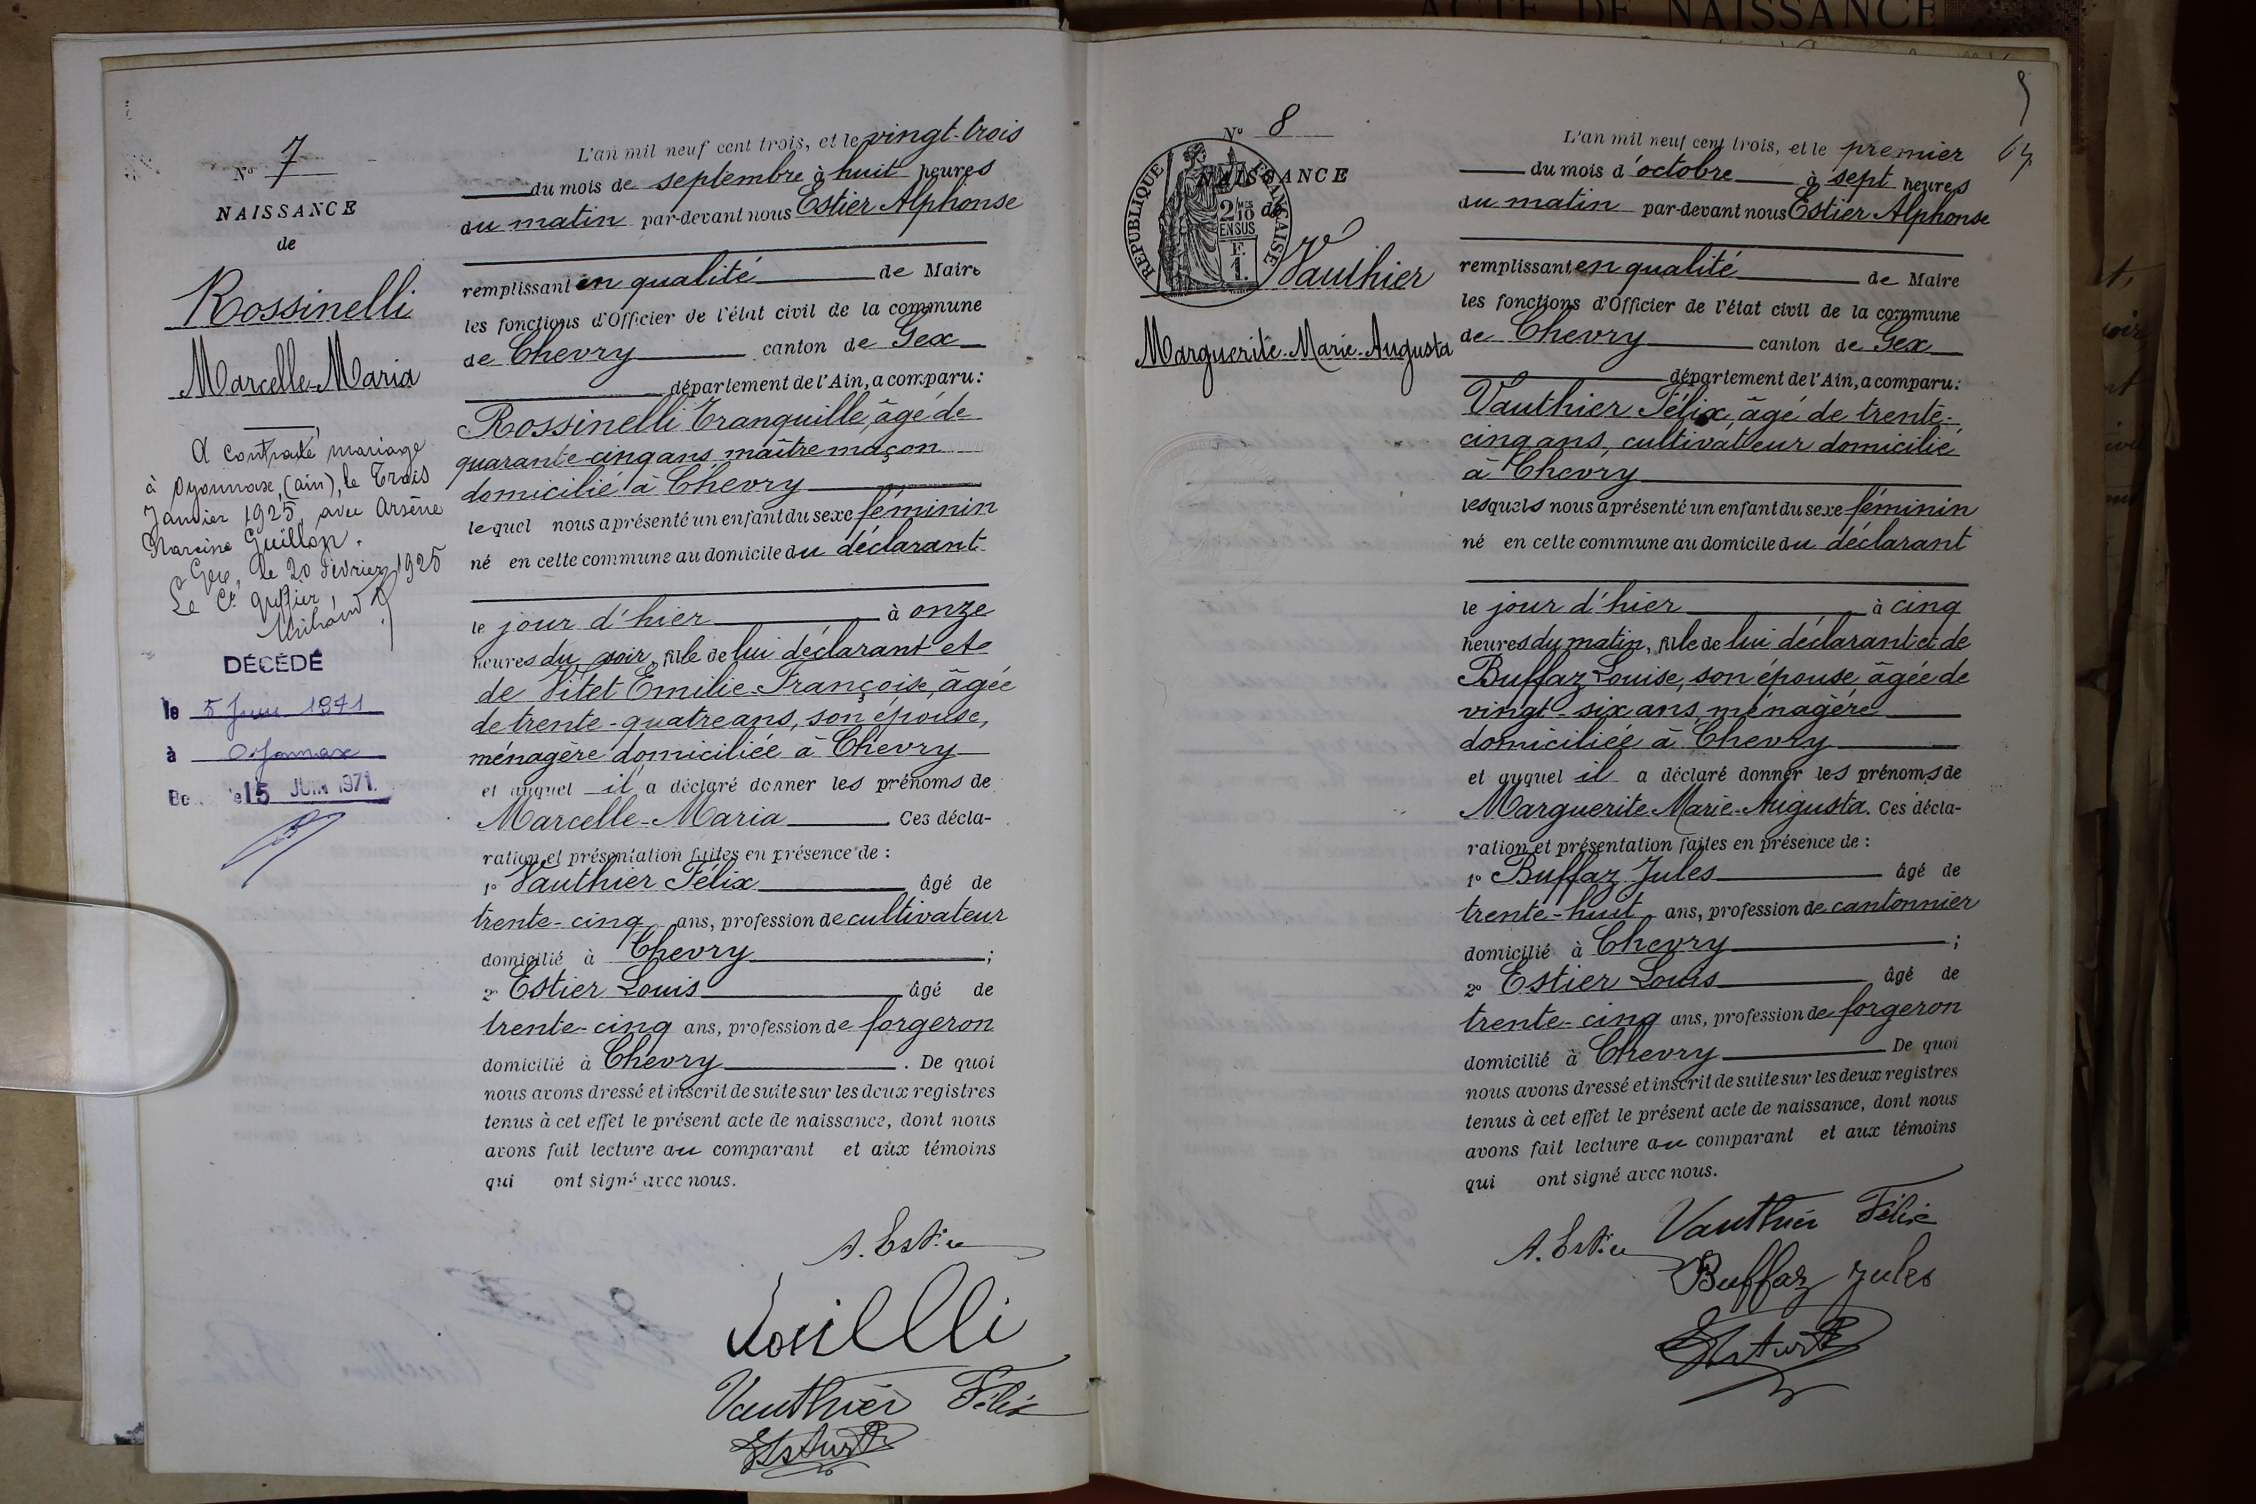 ACTE DE NAISSANCE
N° 7
NAISSANCE
de
Rossinelli
Marcelle-Maria
A contracté mariage
à Oyonnax, (ain), le Trois
Janvier 1925, avec Arsène
Narcisse Guillon.
Gex, le 20 Février 1925
Le Cs greffier
DÉCÉDÉ
le 5 Juin 1971
à Oyonnax
le 15 JUIN 1971.
L'an mil neuf cent trois, et le vingt-trois
du mois de septembre à huit heures
du matin par-devant nous Estier Alphonse
remplissant en qualité de Maire
les fonctions d'Officier de l'état civil de la commune
de Chevry canton de Gex
département de l'Ain, a comparu:
Rossinelli Tranquille, âgé de
quarante-cinq ans, maître maçon
domicilié à Chevry
lequel nous a présenté un enfant du sexe féminin
né en cette commune au domicile du déclarant
le jour d'hier à onze
heures du soir, fille de lui déclarant et
de Vitet Emilie-Françoise, âgée
de trente-quatre ans, son épouse,
ménagère domiciliée à Chevry
et auquel il a déclaré donner les prénoms de
Marcelle-Maria Ces décla-
ration et présentation faites en présence de :
1° Vauthier Félix âgé de
trente-cinq ans, profession de cultivateur
domicilié à Chevry ;
2° Estier Louis âgé de
trente-cinq ans, profession de forgeron
domicilié à Chevry . De quoi
nous avons dressé et inscrit de suite sur les deux registres
tenus à cet effet le présent acte de naissance, dont nous
avons fait lecture au comparant et aux témoins
qui ont signé avec nous.
A. Estier
Vauthier Félix
5
N° 8
NAISSANCE
de
RÉPUBLIQUE FRANÇAISE
2/10
EN SUS
F.
1.
Vauthier
Marguerite-Marie-Augusta
L'an mil neuf cent trois, et le premier
du mois d'octobre à sept heures
du matin par-devant nous Estier Alphonse
remplissant en qualité de Maire
les fonctions d'Officier de l'état civil de la commune
de Chevry canton de Gex
département de l'Ain, a comparu:
Vauthier Félix, âgé de trente-
cinq ans, cultivateur domicilié
à Chevry
lesquels nous a présenté un enfant du sexe féminin
né en cette commune au domicile du déclarant
le jour d'hier à cinq
heures du matin, fille de lui déclarant et de
Buffaz Louise, son épouse âgée de
vingt-six ans, ménagère
domiciliée à Chevry
et auquel il a déclaré donner les prénoms de
Marguerite-Marie-Augusta. Ces décla-
ration et présentation faites en présence de :
1° Buffaz Jules âgé de
trente-huit ans, profession de cantonnier
domicilié à Chevry ;
2° Estier Louis âgé de
trente-cinq ans, profession de forgeron
domicilié à Chevry De quoi
nous avons dressé et inscrit de suite sur les deux registres
tenus à cet effet le présent acte de naissance, dont nous
avons fait lecture au comparant et aux témoins
qui ont signé avec nous.
A. Estier Vauthier Félix
Buffaz Jules